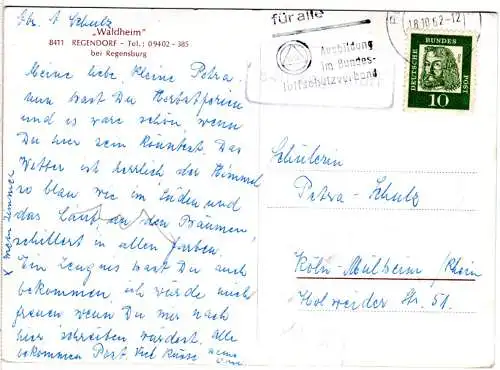 Gbr. A Schulz
„Waldheim"
8411 REGENDORF - Tel.: 09402 - 385
bei Regensburg
Meine liebe, kleine Petra.
nun hast Du Herbstferien
und es wäre schön, wenn
Du hier sein könntest. Das
Wetter ist herrlich der Himmel
so blau wie im Süden und
das Laub an den Bäumen,
schillert in allen Farben.
Ein Zeugnis hast Du auch
bekommen, ich würde mich
freuen wenn Du mir nach
hier schreiben würdest. Alle
bekommen Post. Viel Küsse Deine
Omi
x mein Zimmer
für alle
Ausbildung
im Bundes-
luftschutzverband
18.10.62-12
DEUTSCHE BUNDES POST
10
Schülerin
Petra Schulz
Köln-Mülheim/Rhein
Holweider Str. 51.